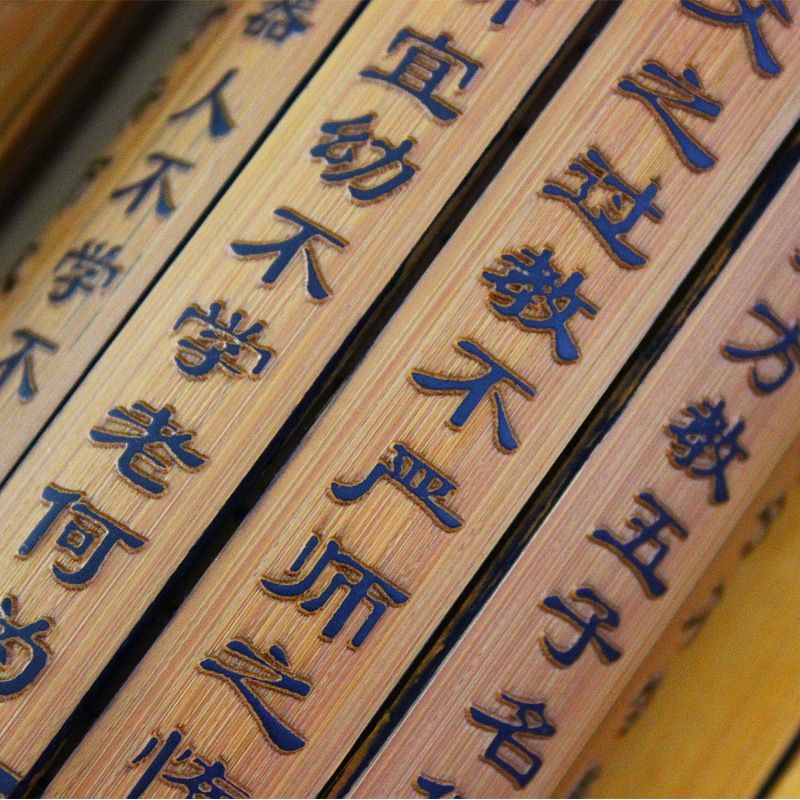 方教五子名
父之过教不严师之惰
宜幼不学老何为
器人不学不